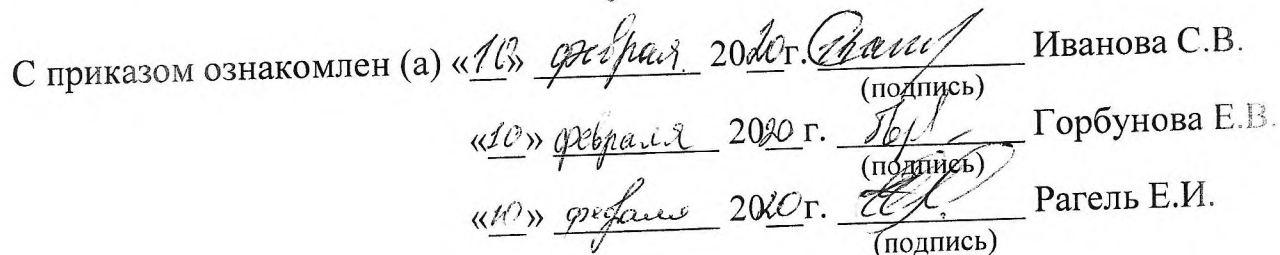 С приказом ознакомлен (а) «10» февраля 2020г. Иванова С.В.
(подпись)
«10» февраля 2020 г. Горбунова Е.В.
(подпись)
«10» февраля 2020г. Рагель Е.И.
(подпись)